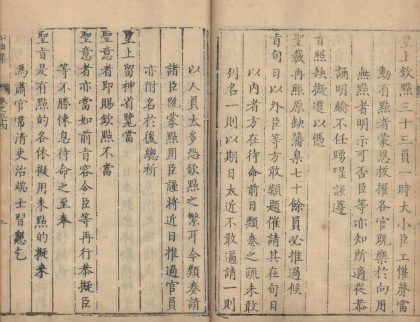 皇上欽點三十三員一時大小臣工懽聲雷
動有點者蒙恩拔擢各官既樂於向用
無點者明示可否臣等亦知所適從恭
誦明綸不任踴躍謹遵
旨照缺擬進以憑
聖裁再照原缺藩臬七十餘員必推過候
旨旬日以外臣等方敢類題催請其在旬日
以內者方在待命前日類奏之疏未敢
列名一則以期日太近不敢遽請一則
以人員太多恐欽點之繁耳今類奏請
諸臣既蒙點用臣謹將近日推過官員
亦附名於後總祈
皇上留神省覽當
聖意者即賜欽點不當
聖意者亦當如前旨容令臣等再行恭擬臣
等不勝悚息待命之至奉
聖旨是有點的各依擬用未點的擬來
為肅官常清吏治端士習懇乞